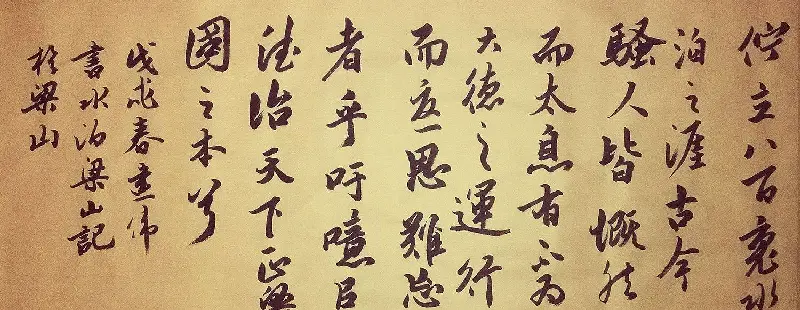 佇立八百裏水
泊之涯古今
騷人皆慨然
而太息有不為
大德之運行
而思難忘
者乎吁噫
治天下正
國之本兮
戊戌春偉
書水泊梁山記
於梁山